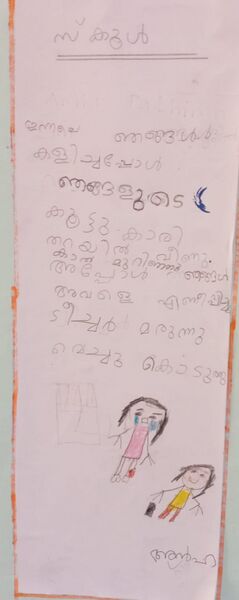 സ്കൂൾ
ഇന്നലെ ഞങ്ങൾ
കളിച്ചപ്പോൾ
ഞങ്ങളുടെ
കൂട്ടുകാരി
തറയിൽ വീണു.
കാല് മുറിഞ്ഞു ഞങ്ങൾ
അപ്പോൾ
അവളെ എണീപ്പിച്ചു
ടീച്ചർ മരുന്നു
വെച്ചു കൊടുത്തു